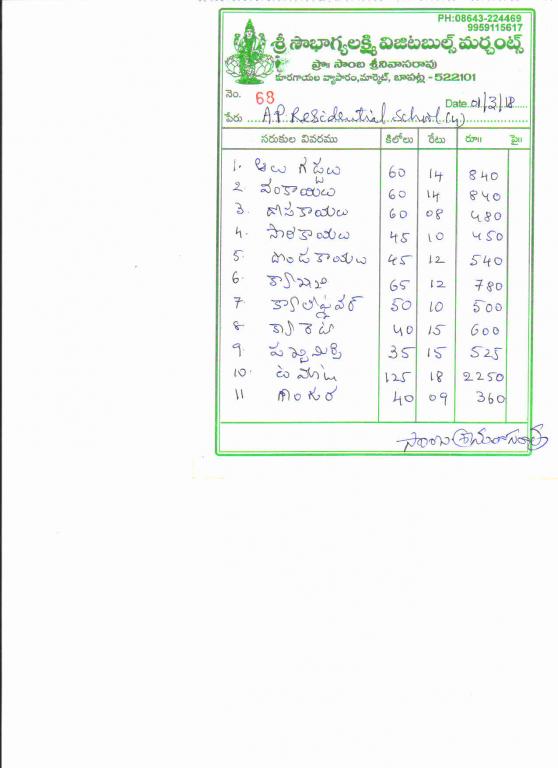 PH:08643-224469
9959115617
శ్రీ సౌభాగ్యలక్ష్మి విజిటబుల్స్ మర్చంట్స్
ప్రొః సాంబ శ్రీనివాసరావు
కూరగాయల వ్యాపారం,మార్కెట్, బాపట్ల - 522101
నెం. 68
Date. 01/3/18
పేరు ... A.P. Residential School (y)
సరుకుల వివరము కిలోలు రేటు రూ॥ పై॥
1. ఆలు గడ్డలు 60 14 840
2. వంకాయలు 60 14 840
3. దోసకాయలు 60 08 480
4. సొరకాయలు 45 10 450
5. దొండకాయలు 45 12 540
6. క్యాబేజి 65 12 780
7. క్యాలీఫ్లవర్ 50 10 500
8. క్యారెట్ 40 15 600
9. పచ్చిమిర్చి 35 15 525
10. టమోటా 125 18 2250
11 గోంగూర 40 09 360